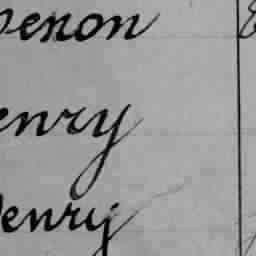 enon
enry
enry